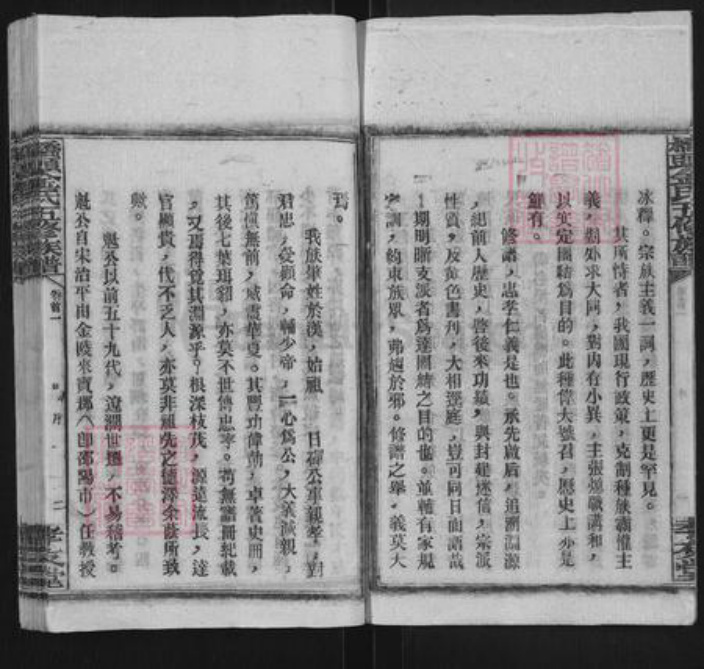 冰釋。宗族主義一詞，歷史上更是罕見。
其所恃者，我國現行政策，克制種族霸權主
義，對外求大同，對內有小異，主張緩戰講和，
以安定團結為目的。此種偉大號召，歷史上亦是
鮮有。
修譜，忠孝仁義是也。承先啟后，追溯淵源
，紹前人歷史，啓後來功績，與封建迷信，宗派
性質，反黃色書刊，大相逕庭，豈可同日而語哉
！期明晰支派者為達團結之目的也。並輔有家規
家訓，約束族眾，弗趨於邪。修譜之舉，義莫大
焉。
我族肇姓於漢，始祖 日磾公事親孝，對
君忠，受顧命，輔少帝，一心為公，大義滅親，
篤慎無前，威震華夏。其豐功偉勛，卓著史冊，
其後七葉珥貂，亦莫不世傳忠孝。苟無譜冊紀載
，又焉得曾其淵源乎？根深枝茂，源遠流長，達
官顯貴，代不乏人，亦莫非祖先之德澤余蔭所致
歟。
魁公以前五十九代，遼濶世遠，不易稽考。
魁公自宋治平由金陵來寶郡（即邵陽市）任教授
氏五修族譜
卷首一
序
二
孝友堂